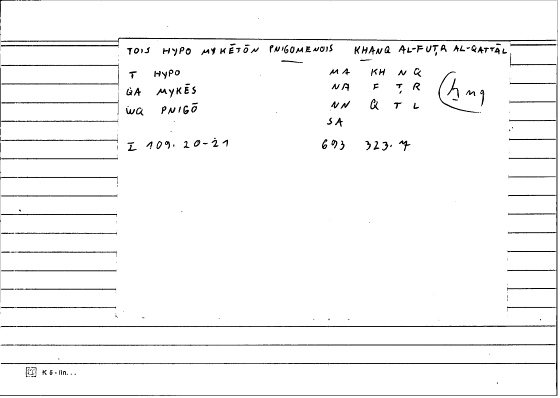 TOIS HYPO MYKĒTŌN PNIGOMENOIS KHANQ AL-FUṬR AL-QATTĀL
T HYPO MA KH N Q
GA MYKĒS NA F Ṭ R
WQ PNIGŌ NN Q T L
SA
ḫnq
I 109.20-21 693 323.7
K 6 - lin. . .